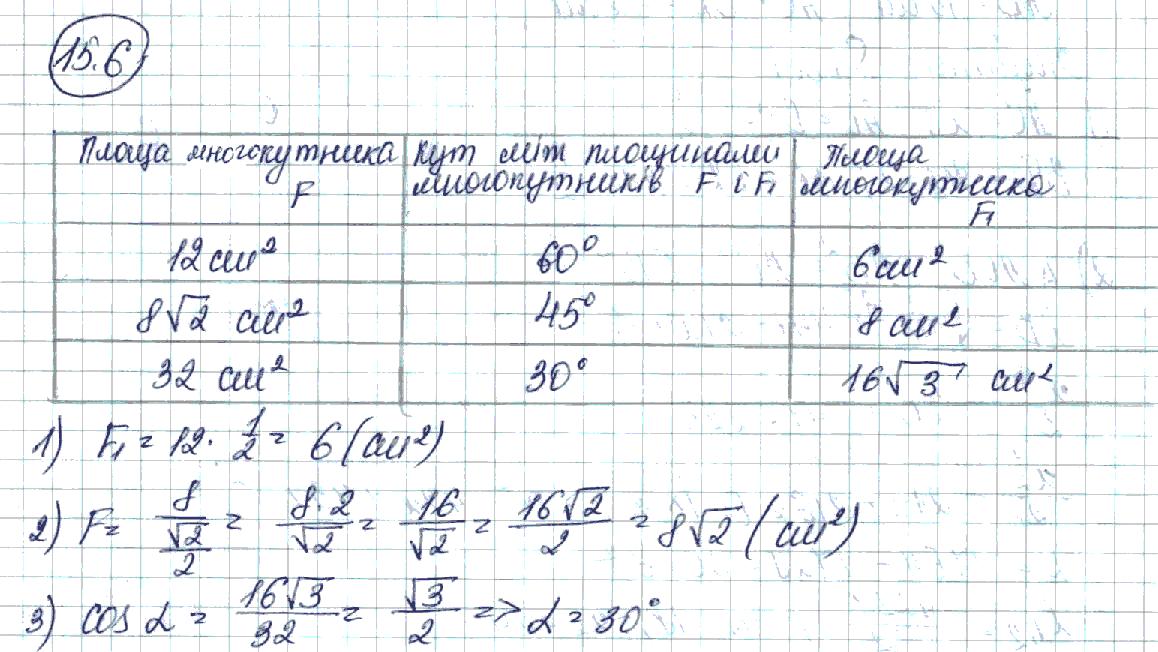 15.6
Площа многокутника F | Кут між площинами многокутників F і F₁ | Площа многокутника F₁
12 см² | 60° | 6 см²
8√2 см² | 45° | 8 см²
32 см² | 30° | 16√3 см²
1) F₁ = 12 · 1/2 = 6 (см²)
2) F = 8/(√2/2) = (8·2)/√2 = 16/√2 = 16√2/2 = 8√2 (см²)
3) cos α = 16√3/32 = √3/2 => α = 30°